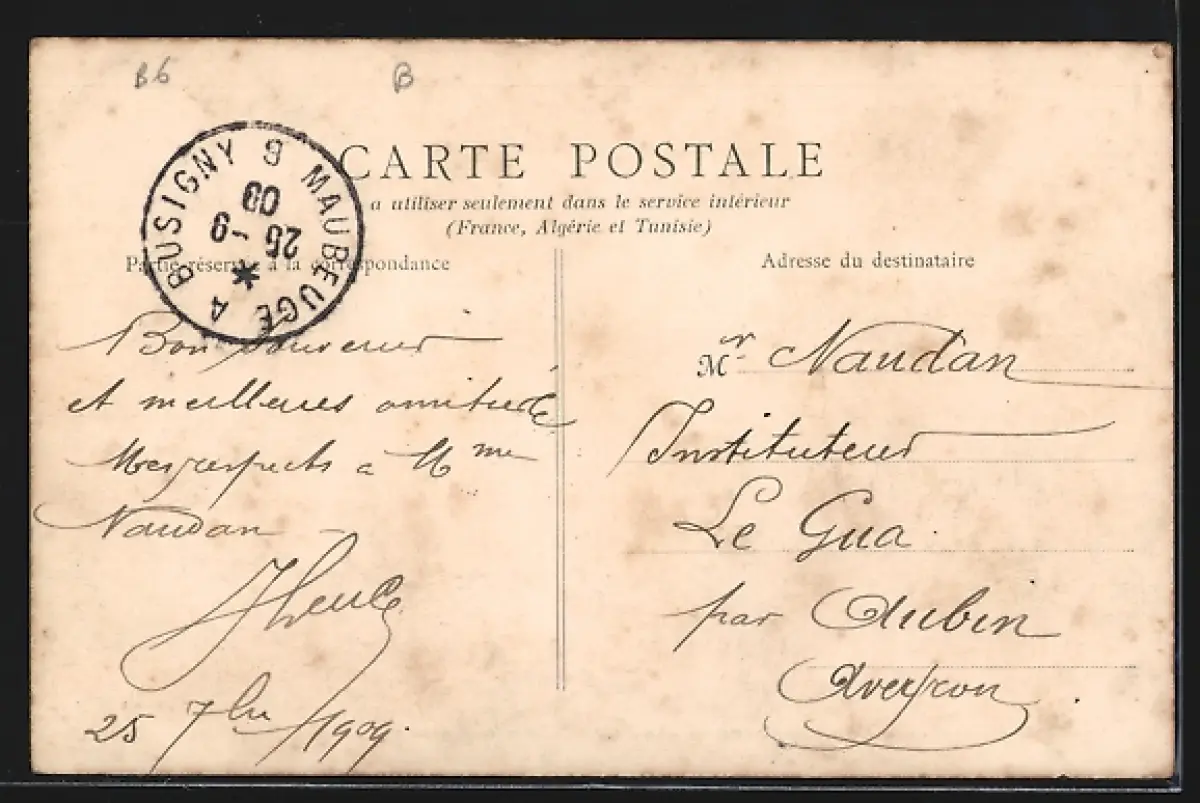 B6
B
CARTE POSTALE
a utiliser seulement dans le service intérieur
(France, Algérie et Tunisie)
MAUBEUGE A BUSIGNY 9
25 -9
09
Partie réservée à la correspondance
Bon souvenir
et meilleures amitiés
Mes respects à Mme
Naudan
25 7bre 1909.
Adresse du destinataire
Mr Naudan
Instituteur
Le Gua
par Aubin
Aveyron